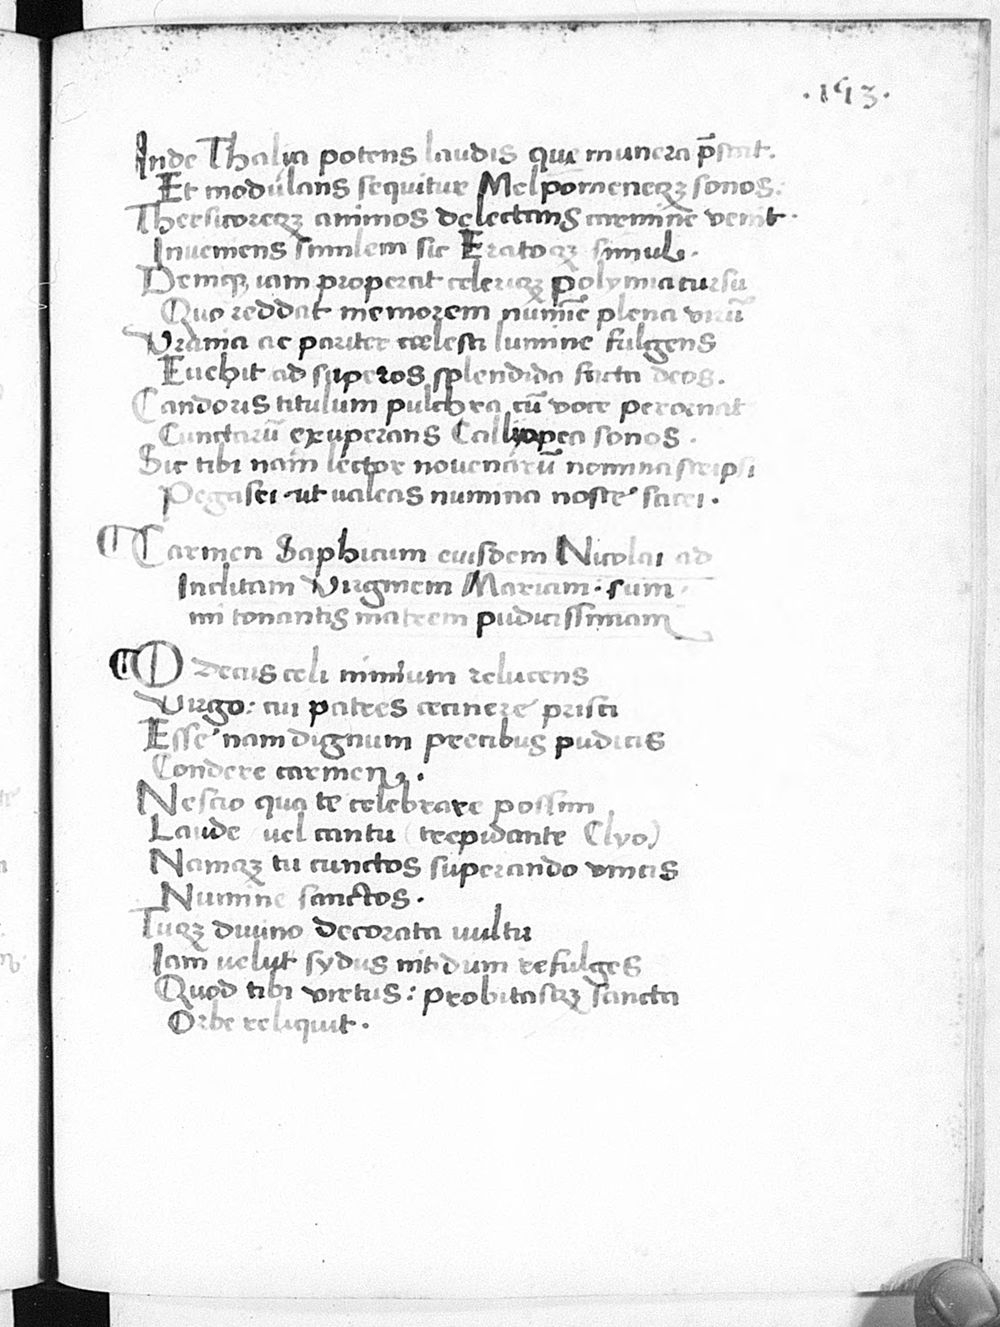 .193.
Inde Thalya potens laudis que munera p̄stat.
Et modulans sequitur Melpomeneqꝫ sonos.
Thersicoreqꝫ animos delectans carmine venit.
Inveniens similem sic Eratoqꝫ simul.
Deniqꝫ iam properat celeriqꝫ polymia cursu
Quo reddat memorem plena virū
Vrania ac pariter cœlesti lumine fulgens
Euehit ad superos splendida facta deos.
Candoris titulum pulchra cū voce perornat
Cunctarū exuperans Callyopea sonos.
Sic tibi nam lector novenarū nomina scripsi
Pegasei ut valeas numina nosce sacri.
Carmen Saphicum eiusdem Nicolai ad
Inclitam Virginem Mariam. sum
mi tonantis matrem pudicissimam
O Decus celi nimium relucens
Virgo: cui patres cecinere prisci
Esse nam dignum precibus pudicis
Condere carmen.
Nescio qua te celebrare possim
Laude vel cantu (trepidante Clyo)
Namqꝫ tu cunctos superando vincis
Numine sanctos.
Tuqꝫ divino decorata vultu
Iam velut sydus nitidum refulges
Quod tibi virtus: probitasqꝫ sancta
Orbe reliquit.